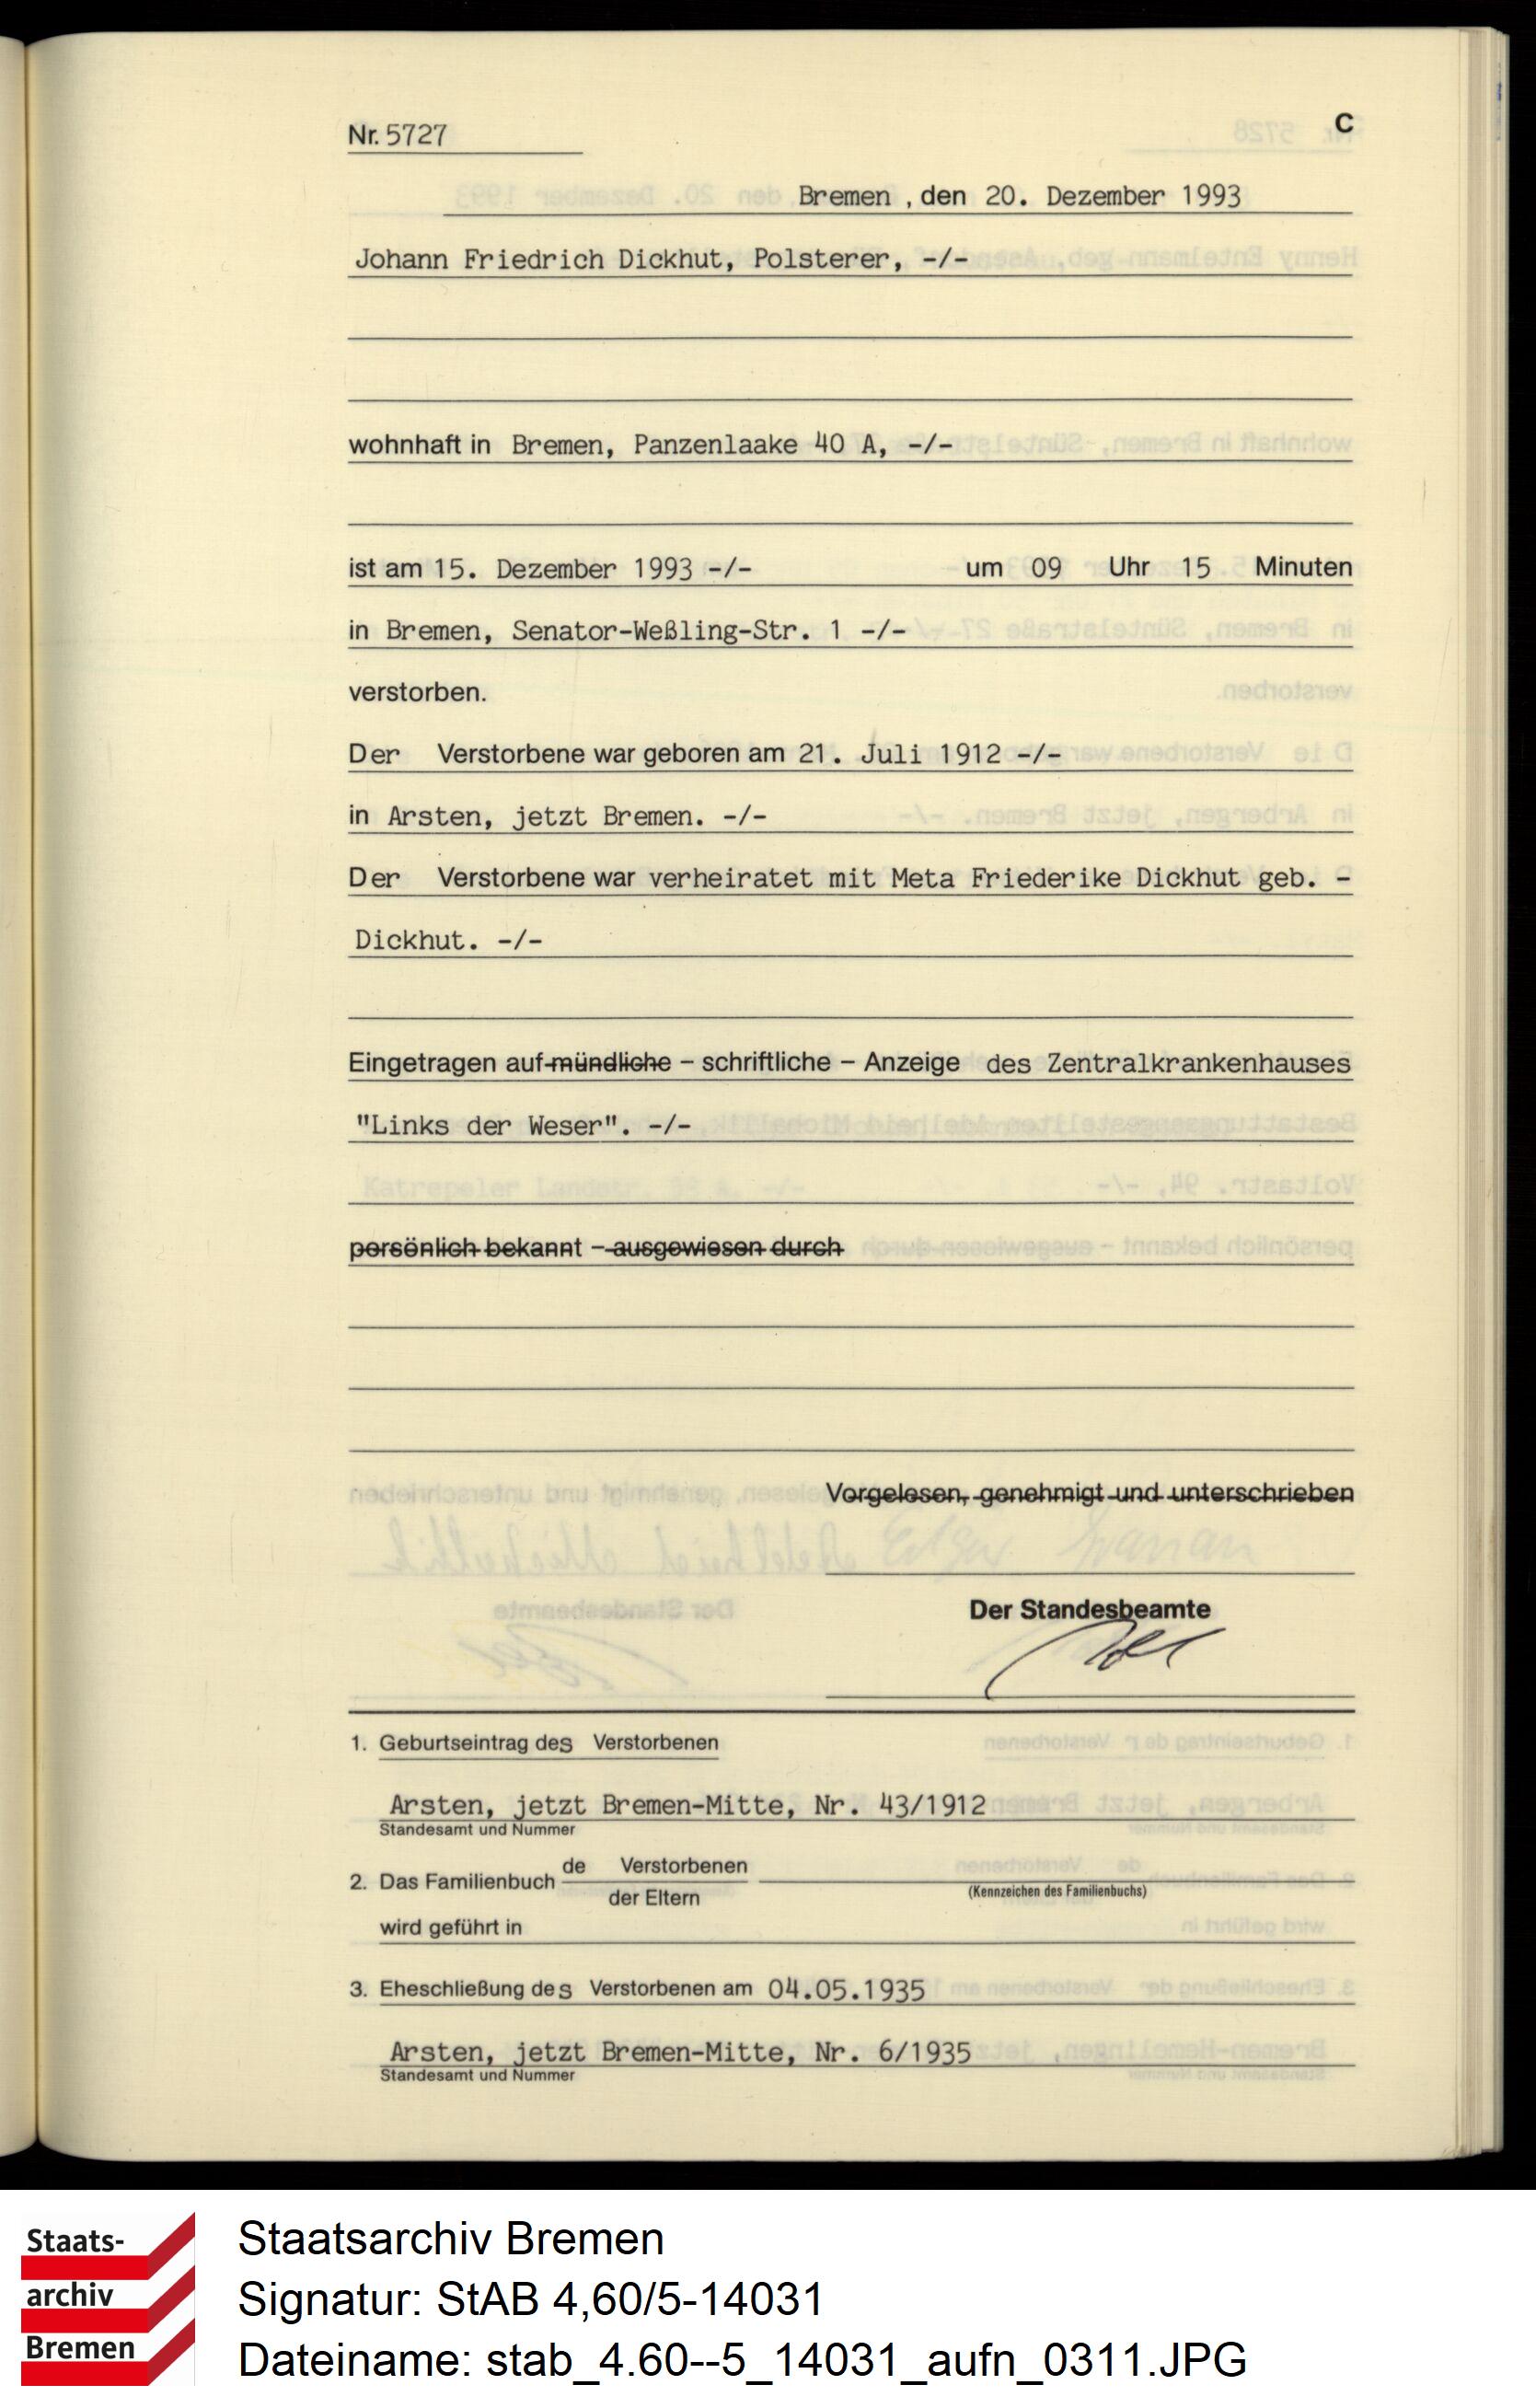 Nr. 5727
C
Bremen , den 20. Dezember 1993
Johann Friedrich Dickhut, Polsterer, -/-
wohnhaft in Bremen, Panzenlaake 40 A, -/-
ist am 15. Dezember 1993 -/- um 09 Uhr 15 Minuten
in Bremen, Senator-Weßling-Str. 1 -/-
verstorben.
Der Verstorbene war geboren am 21. Juli 1912 -/-
in Arsten, jetzt Bremen. -/-
Der Verstorbene war verheiratet mit Meta Friederike Dickhut geb. -
Dickhut. -/-
Eingetragen auf mündliche – schriftliche – Anzeige des Zentralkrankenhauses
"Links der Weser". -/-
Katrepeler Landstr.
persönlich bekannt – ausgewiesen durch
Vorgelesen, genehmigt und unterschrieben
Der Standesbeamte
1. Geburtseintrag des Verstorbenen
Arsten, jetzt Bremen-Mitte, Nr. 43/1912
Standesamt und Nummer
2. Das Familienbuch de Verstorbenen
der Eltern
(Kennzeichen des Familienbuchs)
wird geführt in
3. Eheschließung des Verstorbenen am 04.05.1935
Arsten, jetzt Bremen-Mitte, Nr. 6/1935
Standesamt und Nummer
Staats-
archiv
Bremen
Staatsarchiv Bremen
Signatur: StAB 4,60/5-14031
Dateiname: stab_4.60--5_14031_aufn_0311.JPG